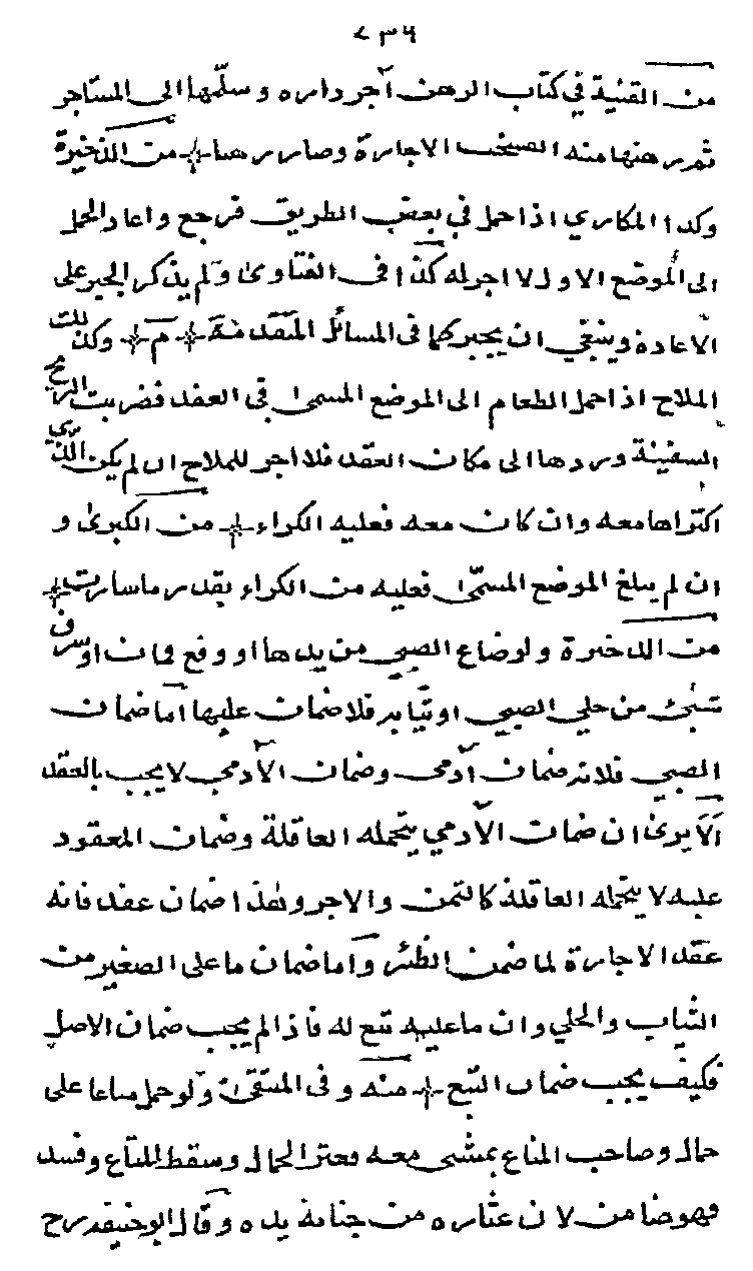 ٧٣٦
من القنية في كتاب الرهن آجر داره وسلمها الى المستاجر
ثم رهنها منه انفسخت الاجارة وصار رهنا من الذخيرة
وكذا المكاري اذا حمل في بعض الطريق فرجع واعاد الحمل
الى الموضع الاول لا اجر له كذا فى الفتاوى ولم يذكر الجبر على
الاعادة وينبغي ان يجبر كما فى المسائل المتقدمة م وكذلك
الملاح اذا حمل الطعام الى الموضع المسمى فى العقد فضربت الريح
السفينة وردها الى مكان العقد فلا اجر للملاح ان لم يكن الذي
اكتراها معه وان كان معه فعليه الكراء من الكبرى و
ان لم يبلغ الموضع المسمى فعليه من الكراء بقدر ما سارت
من الذخيرة ولو ضاع الصبي من يدها او وقع فمات او سرق
شئ من حلي الصبي او ثيابه فلا ضمان عليها اما ضمان
الصبي فلانه ضمان آدمى وضمان الآدمي لا يجب بالعقد
ألا يرى ان ضمان الآدمي يتحمله العاقلة وضمان المعقود
عليه لا يتحمله العاقلة كالثمن والاجر وهذا ضمان عقد فانه
عقد الاجارة لما ضمن الظئر واما ضمان ما على الصغير من
الثياب والحلي وان ما عليه تبع له فاذا لم يجب ضمان الاصل
فكيف يجب ضمان التبع منه وفى المنتقى ولو حمل متاعا على
حمال وصاحب المتاع يمشى معه فعثر الحمال وسقط المتاع وفسد
فهو ضامن لان عثاره من جناية يده وقال ابو حنيفة رح